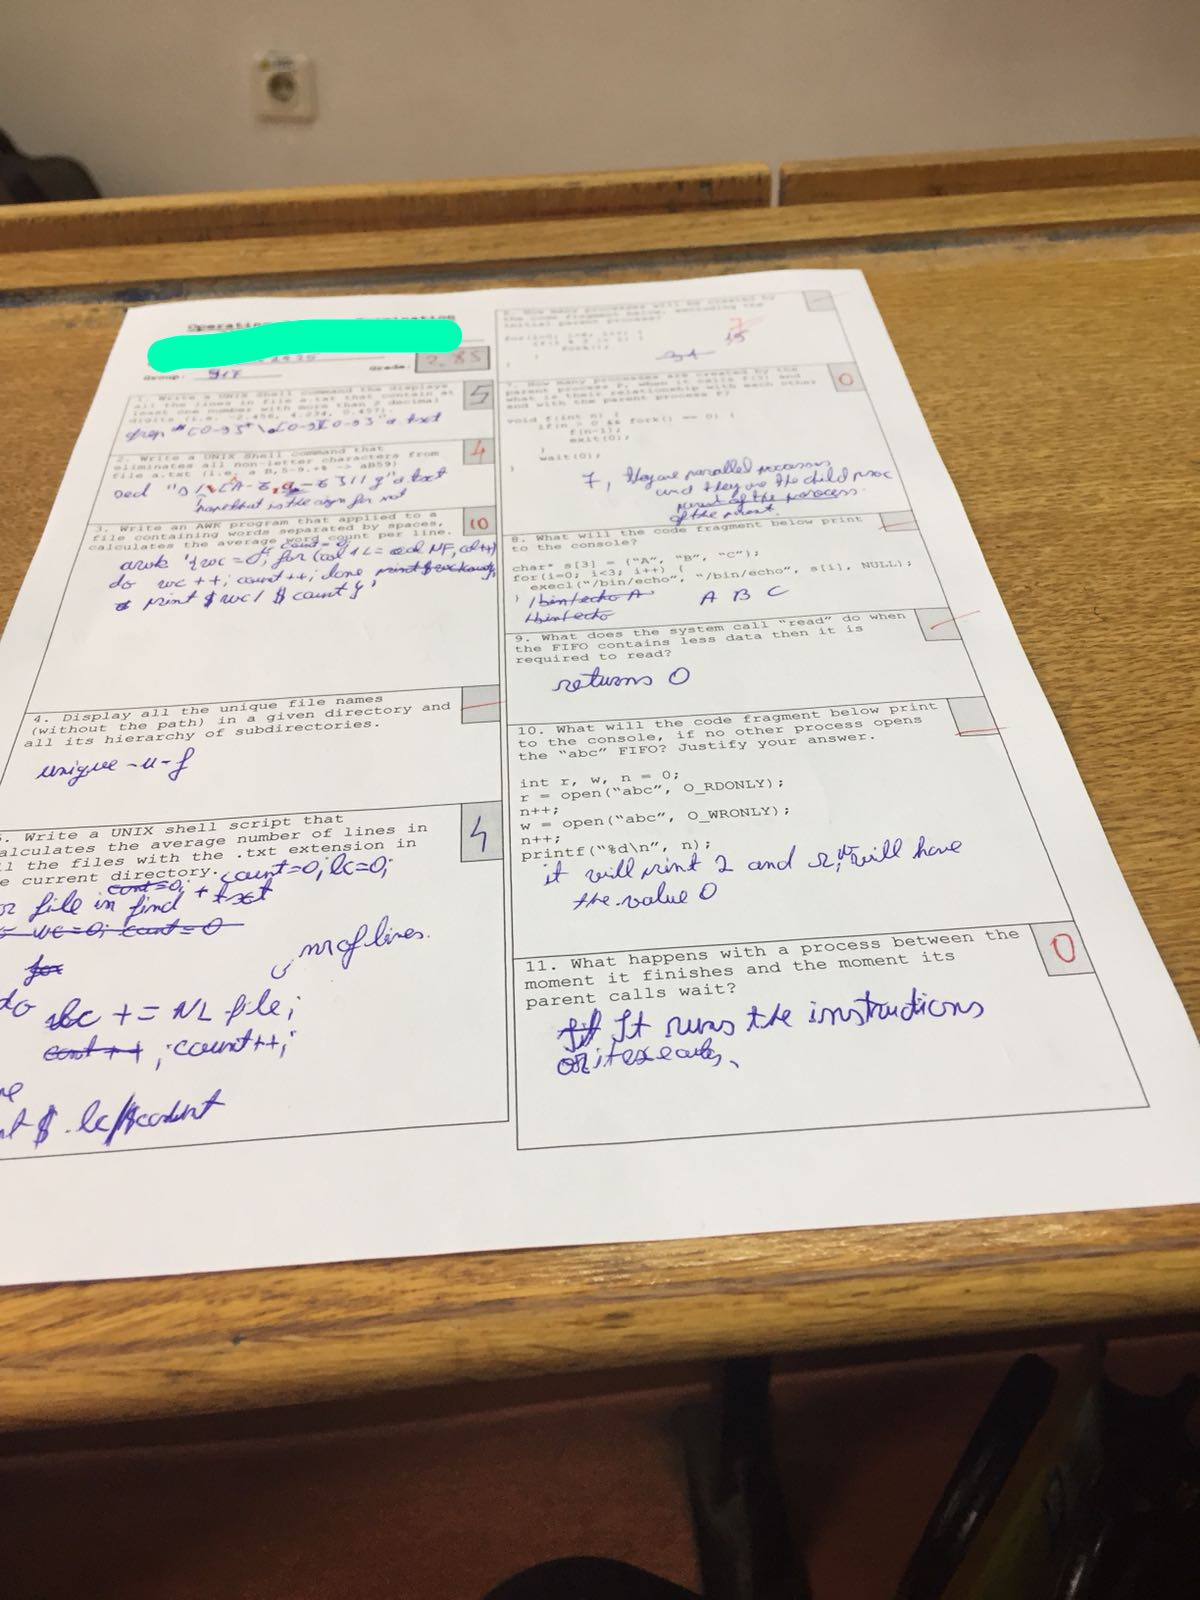 Operating
Group: 917
Grade: 2.85
1. Write a UNIX Shell command the displays
all the lines in file a.txt that contain at
least one number with more than 2 decimal
digits (i.e. -2.456, 4.234, 0.457).
5
a.txt
2. Write a UNIX Shell command that
eliminates all non-letter characters from
file a.txt (i.e. a B,5-9.+$ -> aB59)
4
a.txt
that is the sign for not
3. Write an AWK program that applied to a
file containing words separated by spaces,
calculates the average word count per line.
10
count = 0;
do wc ++; count ++; done
print $ wc / $ count
4. Display all the unique file names
(without the path) in a given directory and
all its hierarchy of subdirectories.
unique -u -f
5. Write a UNIX shell script that
calculates the average number of lines in
all the files with the .txt extension in
the current directory.
4
count=0; lc=0;
file in find
wc = 0; count = 0
for
nr of lines.
do lc += NL file;
; count++;
$ lc/$count
6. How many processes will be created by
the code fragment below, excluding the
initial parent process?
for(i=0; i<6; i++) {
fork();
}
7
15
7. How many processes are created by the
parent process P, when it calls f(3) and
what is their relationship with each other
and with the parent process P?
0
void f(int n) {
if(n > 0 && fork() == 0) {
f(n-1);
exit(0);
}
wait(0);
}
7, they are parallel processes
and they are the child proc
of the process
of the parent.
8. What will the code fragment below print
to the console?
char* s[3] = {"A", "B", "C"};
for(i=0; i<3; i++) {
execl("/bin/echo", "/bin/echo", s[i], NULL);
}
/bin/echo A
/bin/echo
A B C
9. What does the system call "read" do when
the FIFO contains less data then it is
required to read?
returns 0
10. What will the code fragment below print
to the console, if no other process opens
the "abc" FIFO? Justify your answer.
int r, w, n = 0;
r = open("abc", O_RDONLY);
n++;
w = open("abc", O_WRONLY);
n++;
printf("%d\n", n);
it will print 2 and will have
the value 0
11. What happens with a process between the
moment it finishes and the moment its
parent calls wait?
0
It runs the instructions
or it